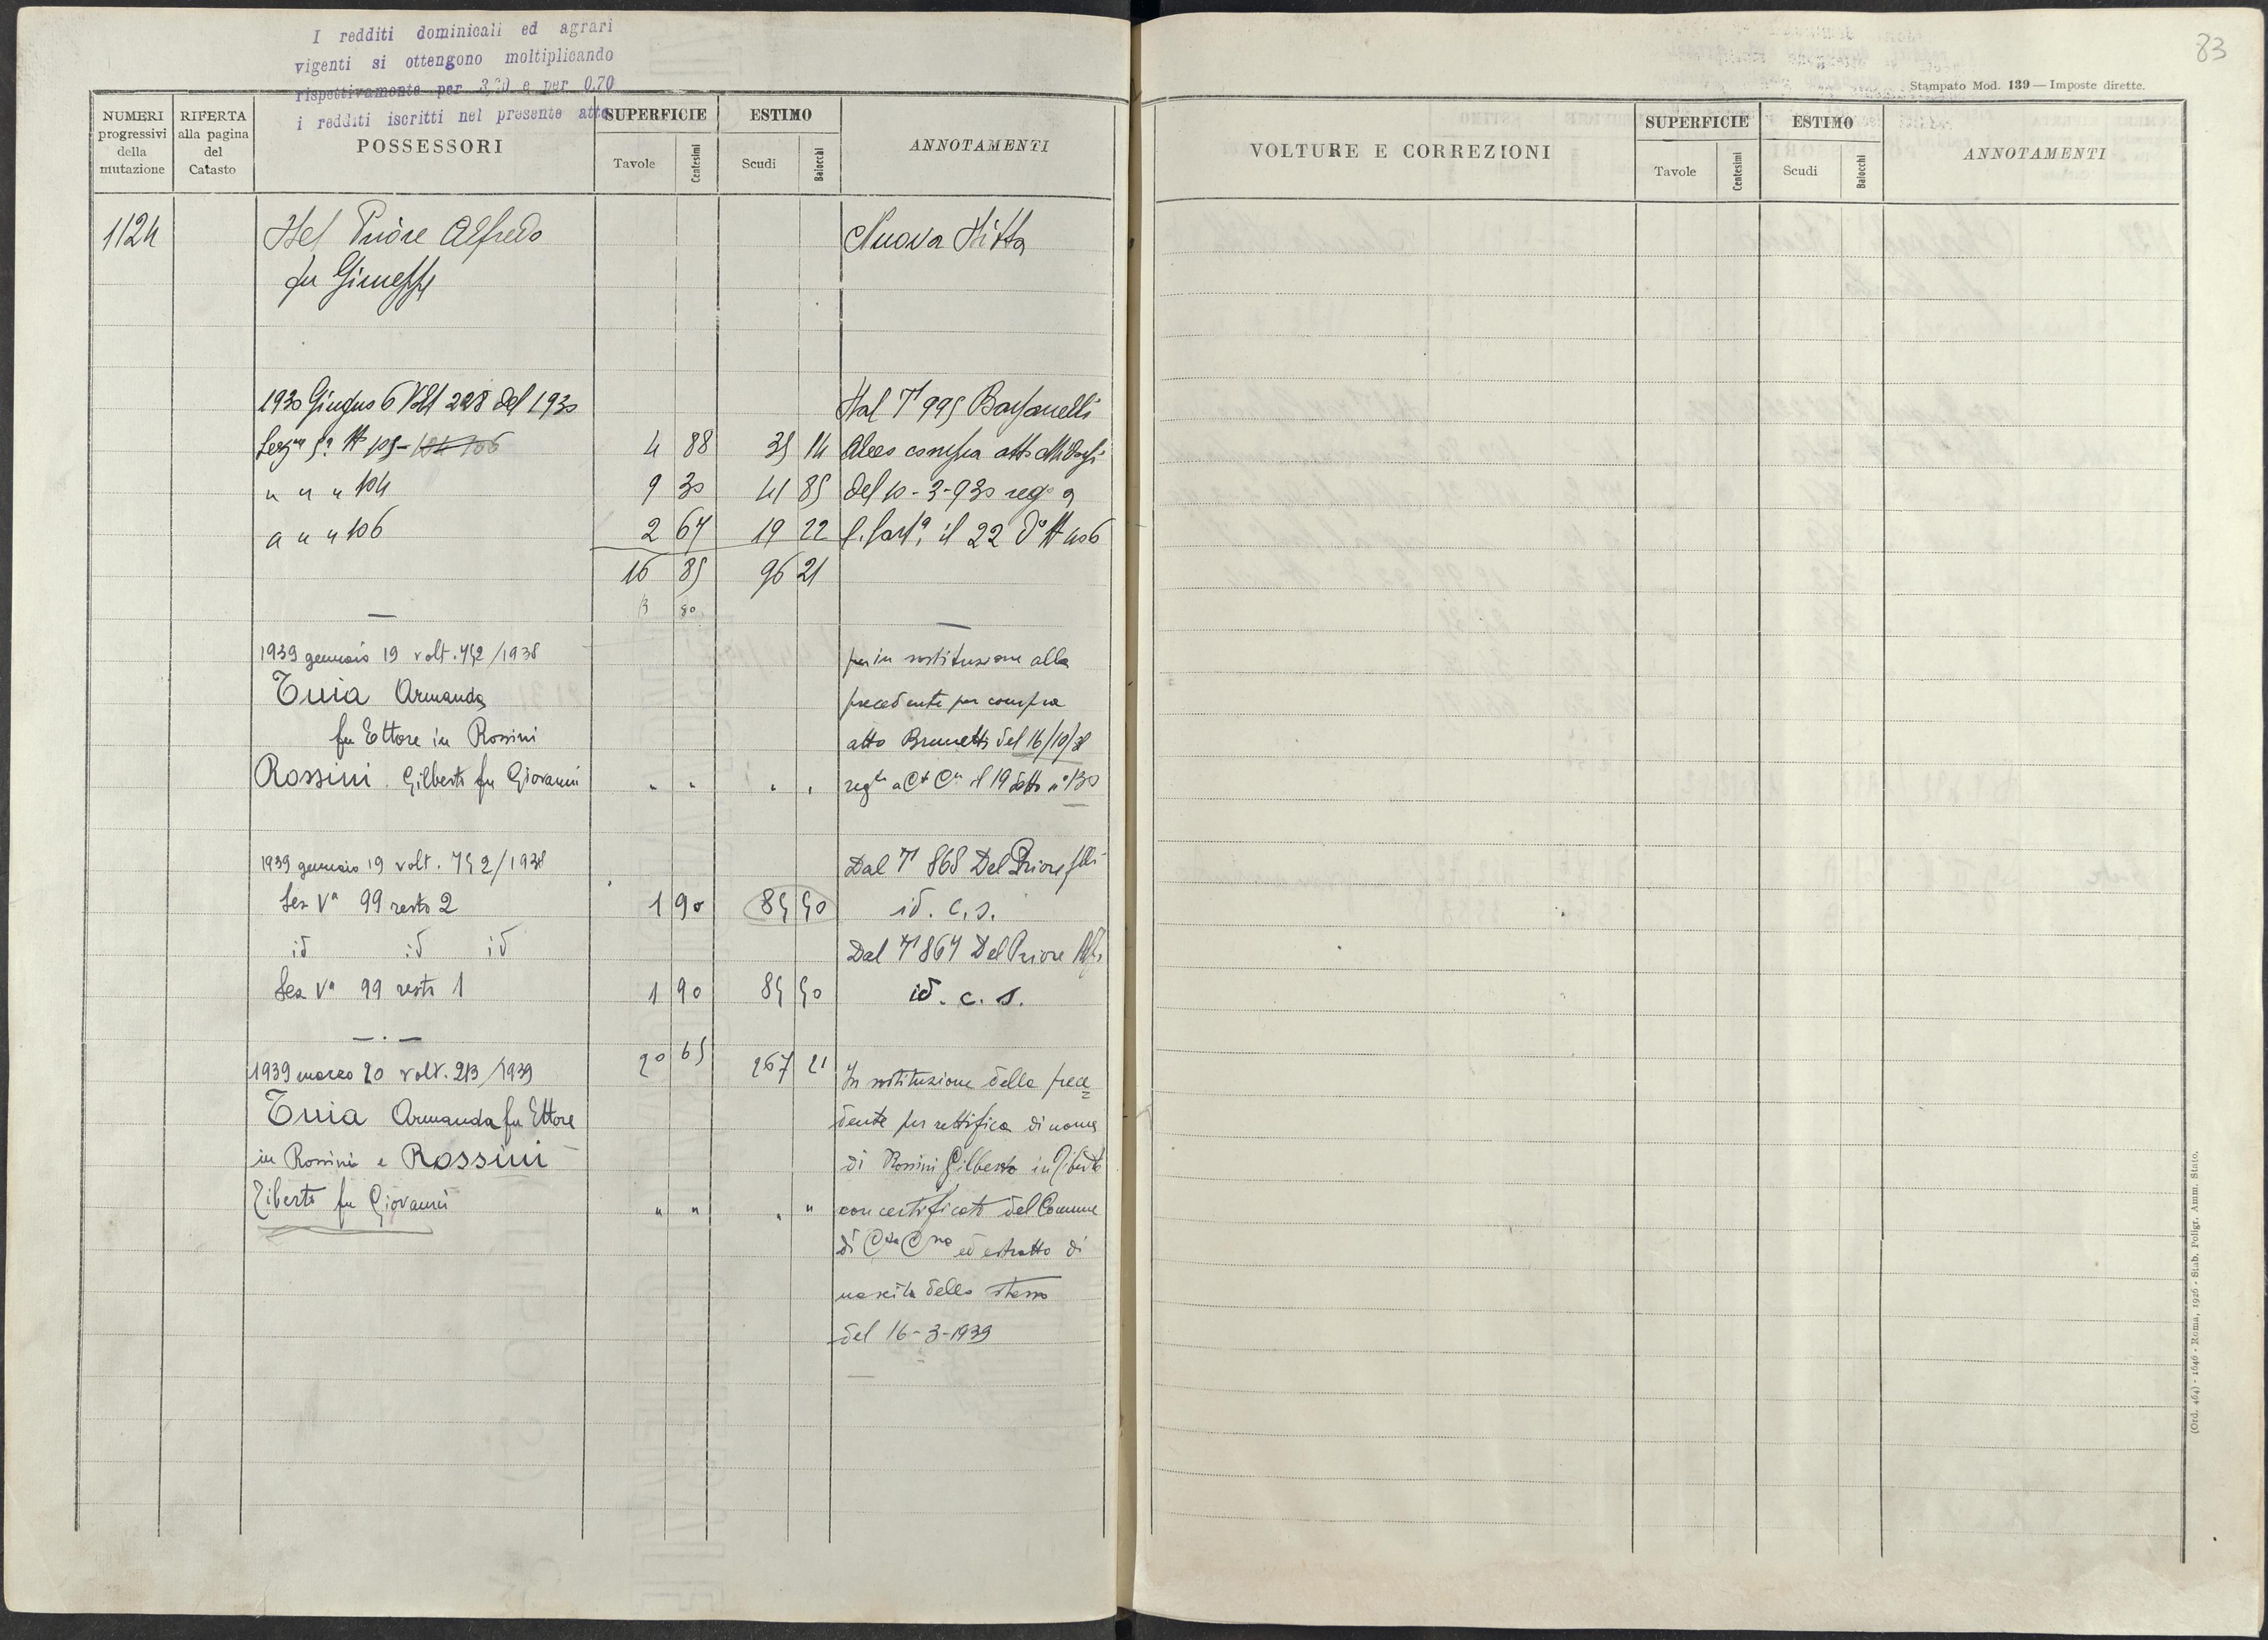 I redditi dominicali ed agrari
vigenti si ottengono moltiplicando
rispettivamente per 3,20 e per 0,70
i redditi iscritti nel presente atto
83
Stampato Mod. 139 — Imposte dirette.
NUMERI progressivi della mutazione
RIFERTA alla pagina del Catasto
POSSESSORI
SUPERFICIE
Tavole Centesimi
ESTIMO
Scudi Baiocchi
ANNOTAMENTI
VOLTURE E CORREZIONI
SUPERFICIE
Tavole Centesimi
ESTIMO
Scudi Baiocchi
ANNOTAMENTI
1124 Del Priore Alfredo Nuova Ditta
fu Giuseppe
1930 Giugno 6 Volt 228 del 1930 Dal T 995
Sezne 5a N 105 - 104 106 4 88 35 14 compra atto
" " " 104 9 30 41 85 del 10-3-930 reg a
" " " 106 2 67 19 22 il 22 do N 406
16 85 96 21
1939 gennaio 19 volt. 752/1938 per in sostituzione alla
Tuia Armanda precedente per compra
fu Ettore in Rossini atto Brunetti del 16/10/38
Rossini Gilberto fu Giovanni " " " " regto a Cta Cna il 19 detto n° 130
1939 gennaio 19 volt. 752/1938 Dal T 868 Del Priore
Sez Va 99 resto 2 1 90 85 50 id. c. s.
id id id Dal T 867 Del Priore
Sez Va 99 resto 1 1 90 85 50 id. c. s.
20 65 267 21
1939 marzo 20 volt. 213/1939 In sostituzione della prece=
Tuia Armanda fu Ettore dente per rettifica di nome
in Rossini e Rossini di Rossini Gilberto in Ziberto
Ziberto fu Giovanni " " " " con certificato del Comune
di Cta Cna ed estratto di
nascita dello stesso
del 16-3-1939
(Ord. 464) - 1646 - Roma, 1926 - Stab. Poligr. Amm. Stato.